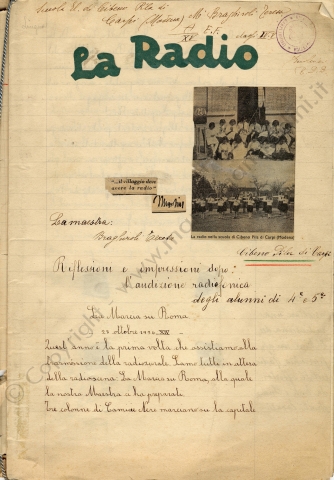 Scuola El. di Cibeno Pila di
Carpi (Modena) M.a Braghiroli Tecen
XV E.F. classi IV-V
La Radio
"...il villaggio deve
avere la radio"
Mussolini
La radio nella scuola di Cibeno Pila di Carpi (Modena)
La maestra:
Braghiroli
Cibeno Pila di Carpi
Riflessioni e impressioni dopo
l'audizione radiofonica
degli alunni di 4ª e 5ª
La Marcia su Roma
Quest'anno è la prima volta che assistiamo alla
trasmissione della radiorurale. Siamo tutti in attesa
della radioscena: La Marcia su Roma, alla quale
la nostra Maestra ci ha preparati.
Tre colonne di Camicie Nere marciano su la capitale